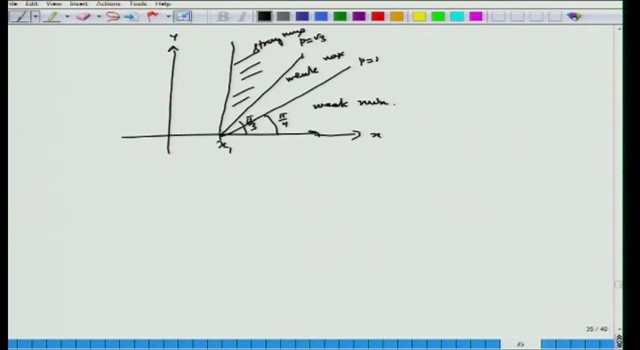 Edit View Insert Actions Tools Help
y
strong max
p=√3
weak max
p=1
weak min.
π/3
π/4
x₁
x
35 / 40
35